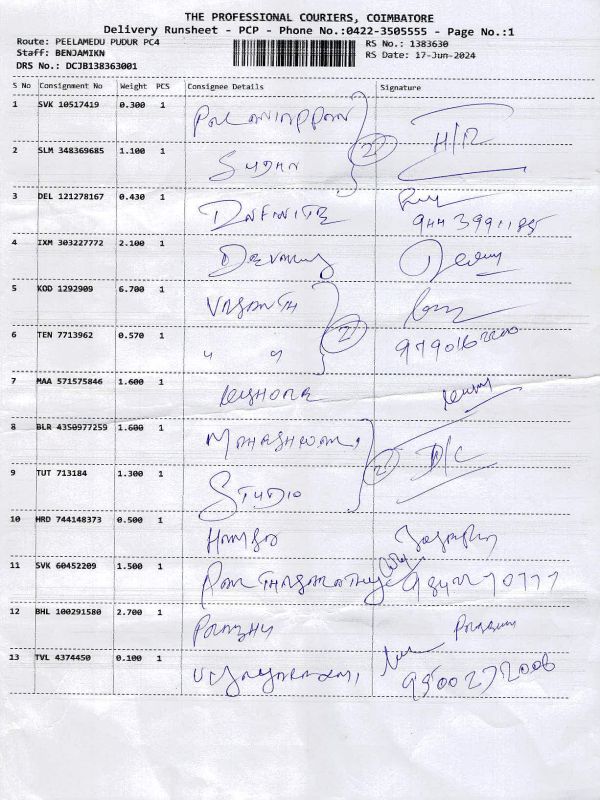 THE PROFESSIONAL COURIERS, COIMBATORE
Delivery Runsheet - PCP - Phone No.:0422-3505555 - Page No.:1
Route: PEELAMEDU PUDUR PC4 RS No.: 1383630
Staff: BENJAMIKN RS Date: 17-Jun-2024
DRS No.: DCJB138363001
S No Consignment No Weight PCS Consignee Details Signature
1 SVK 10517419 0.300 1 Palaniappan
2 SLM 348369685 1.100 1 SUDAN 2 H/R
3 DEL 121278167 0.430 1 INFINITE 9443991185
4 IXM 303227772 2.100 1
5 KOD 1292909 6.700 1 VASANTH
6 TEN 7713962 0.570 1 " " 2 9790162200
7 MAA 571575846 1.600 1 KISHORE
8 BLR 4350977259 1.600 1
9 TUT 713184 1.300 1 STUDIO 2 D/C
10 HRD 744148373 0.500 1
11 SVK 60452209 1.500 1
12 BHL 100291580 2.700 1
13 TVL 4374450 0.100 1 9500272006